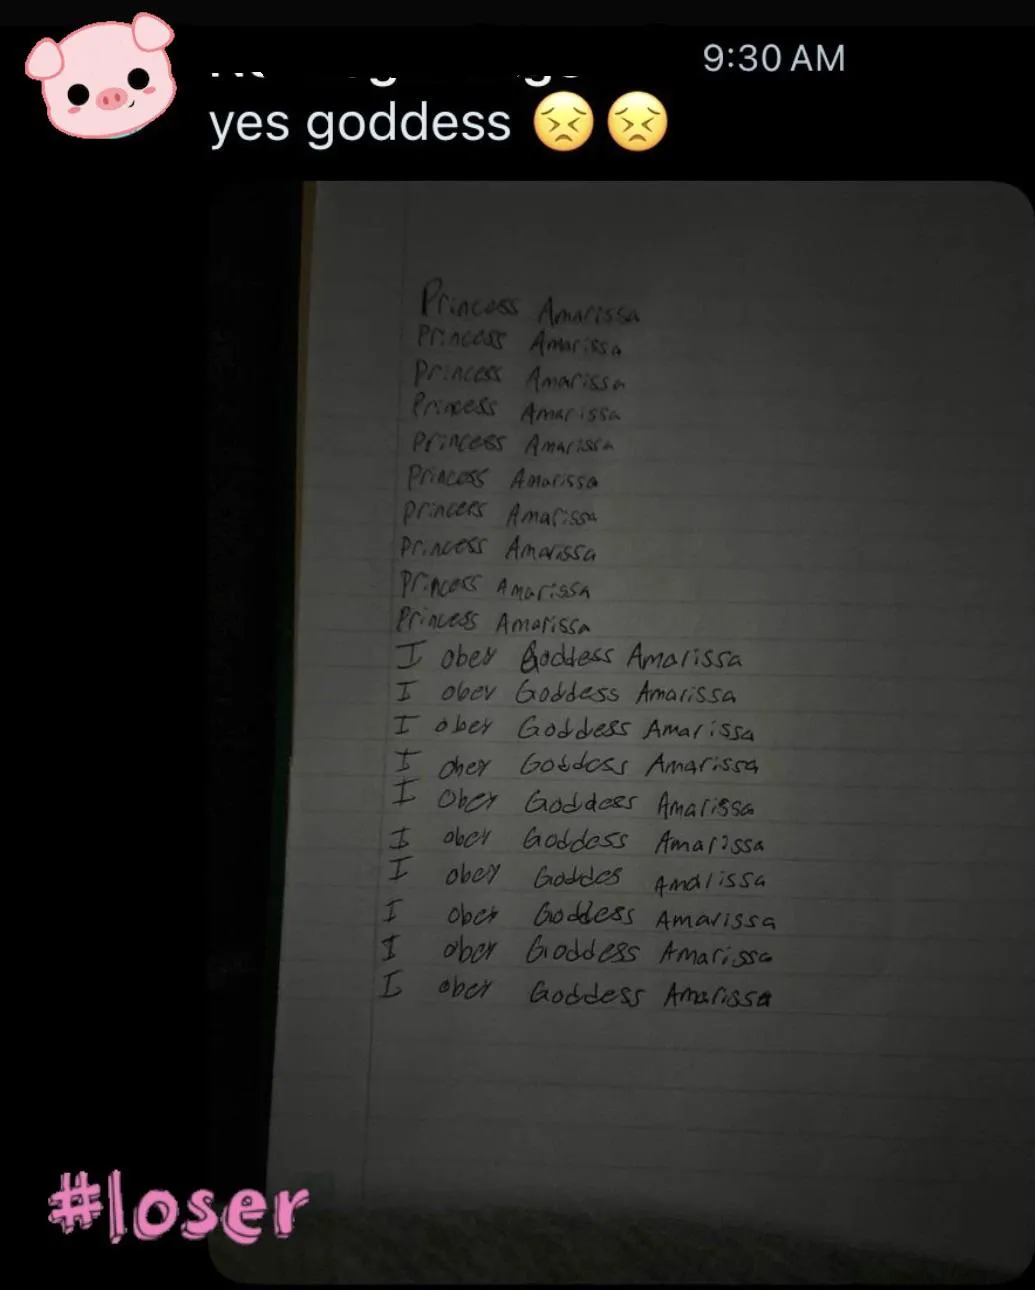 9:30 AM
yes goddess 😣😣
Princess Amarissa
Princess Amarissa
Princess Amarissa
Princess Amarissa
Princess Amarissa
Princess Amarissa
Princess Amarissa
Princess Amarissa
Princess Amarissa
Princess Amarissa
I obey Goddess Amarissa
I obey Goddess Amarissa
I obey Goddess Amarissa
I obey Goddess Amarissa
I obey Goddess Amarissa
I obey Goddess Amarissa
I obey Goddes Amarissa
I obey Goddess Amarissa
I obey Goddess Amarissa
I obey Goddess Amarissa
#loser